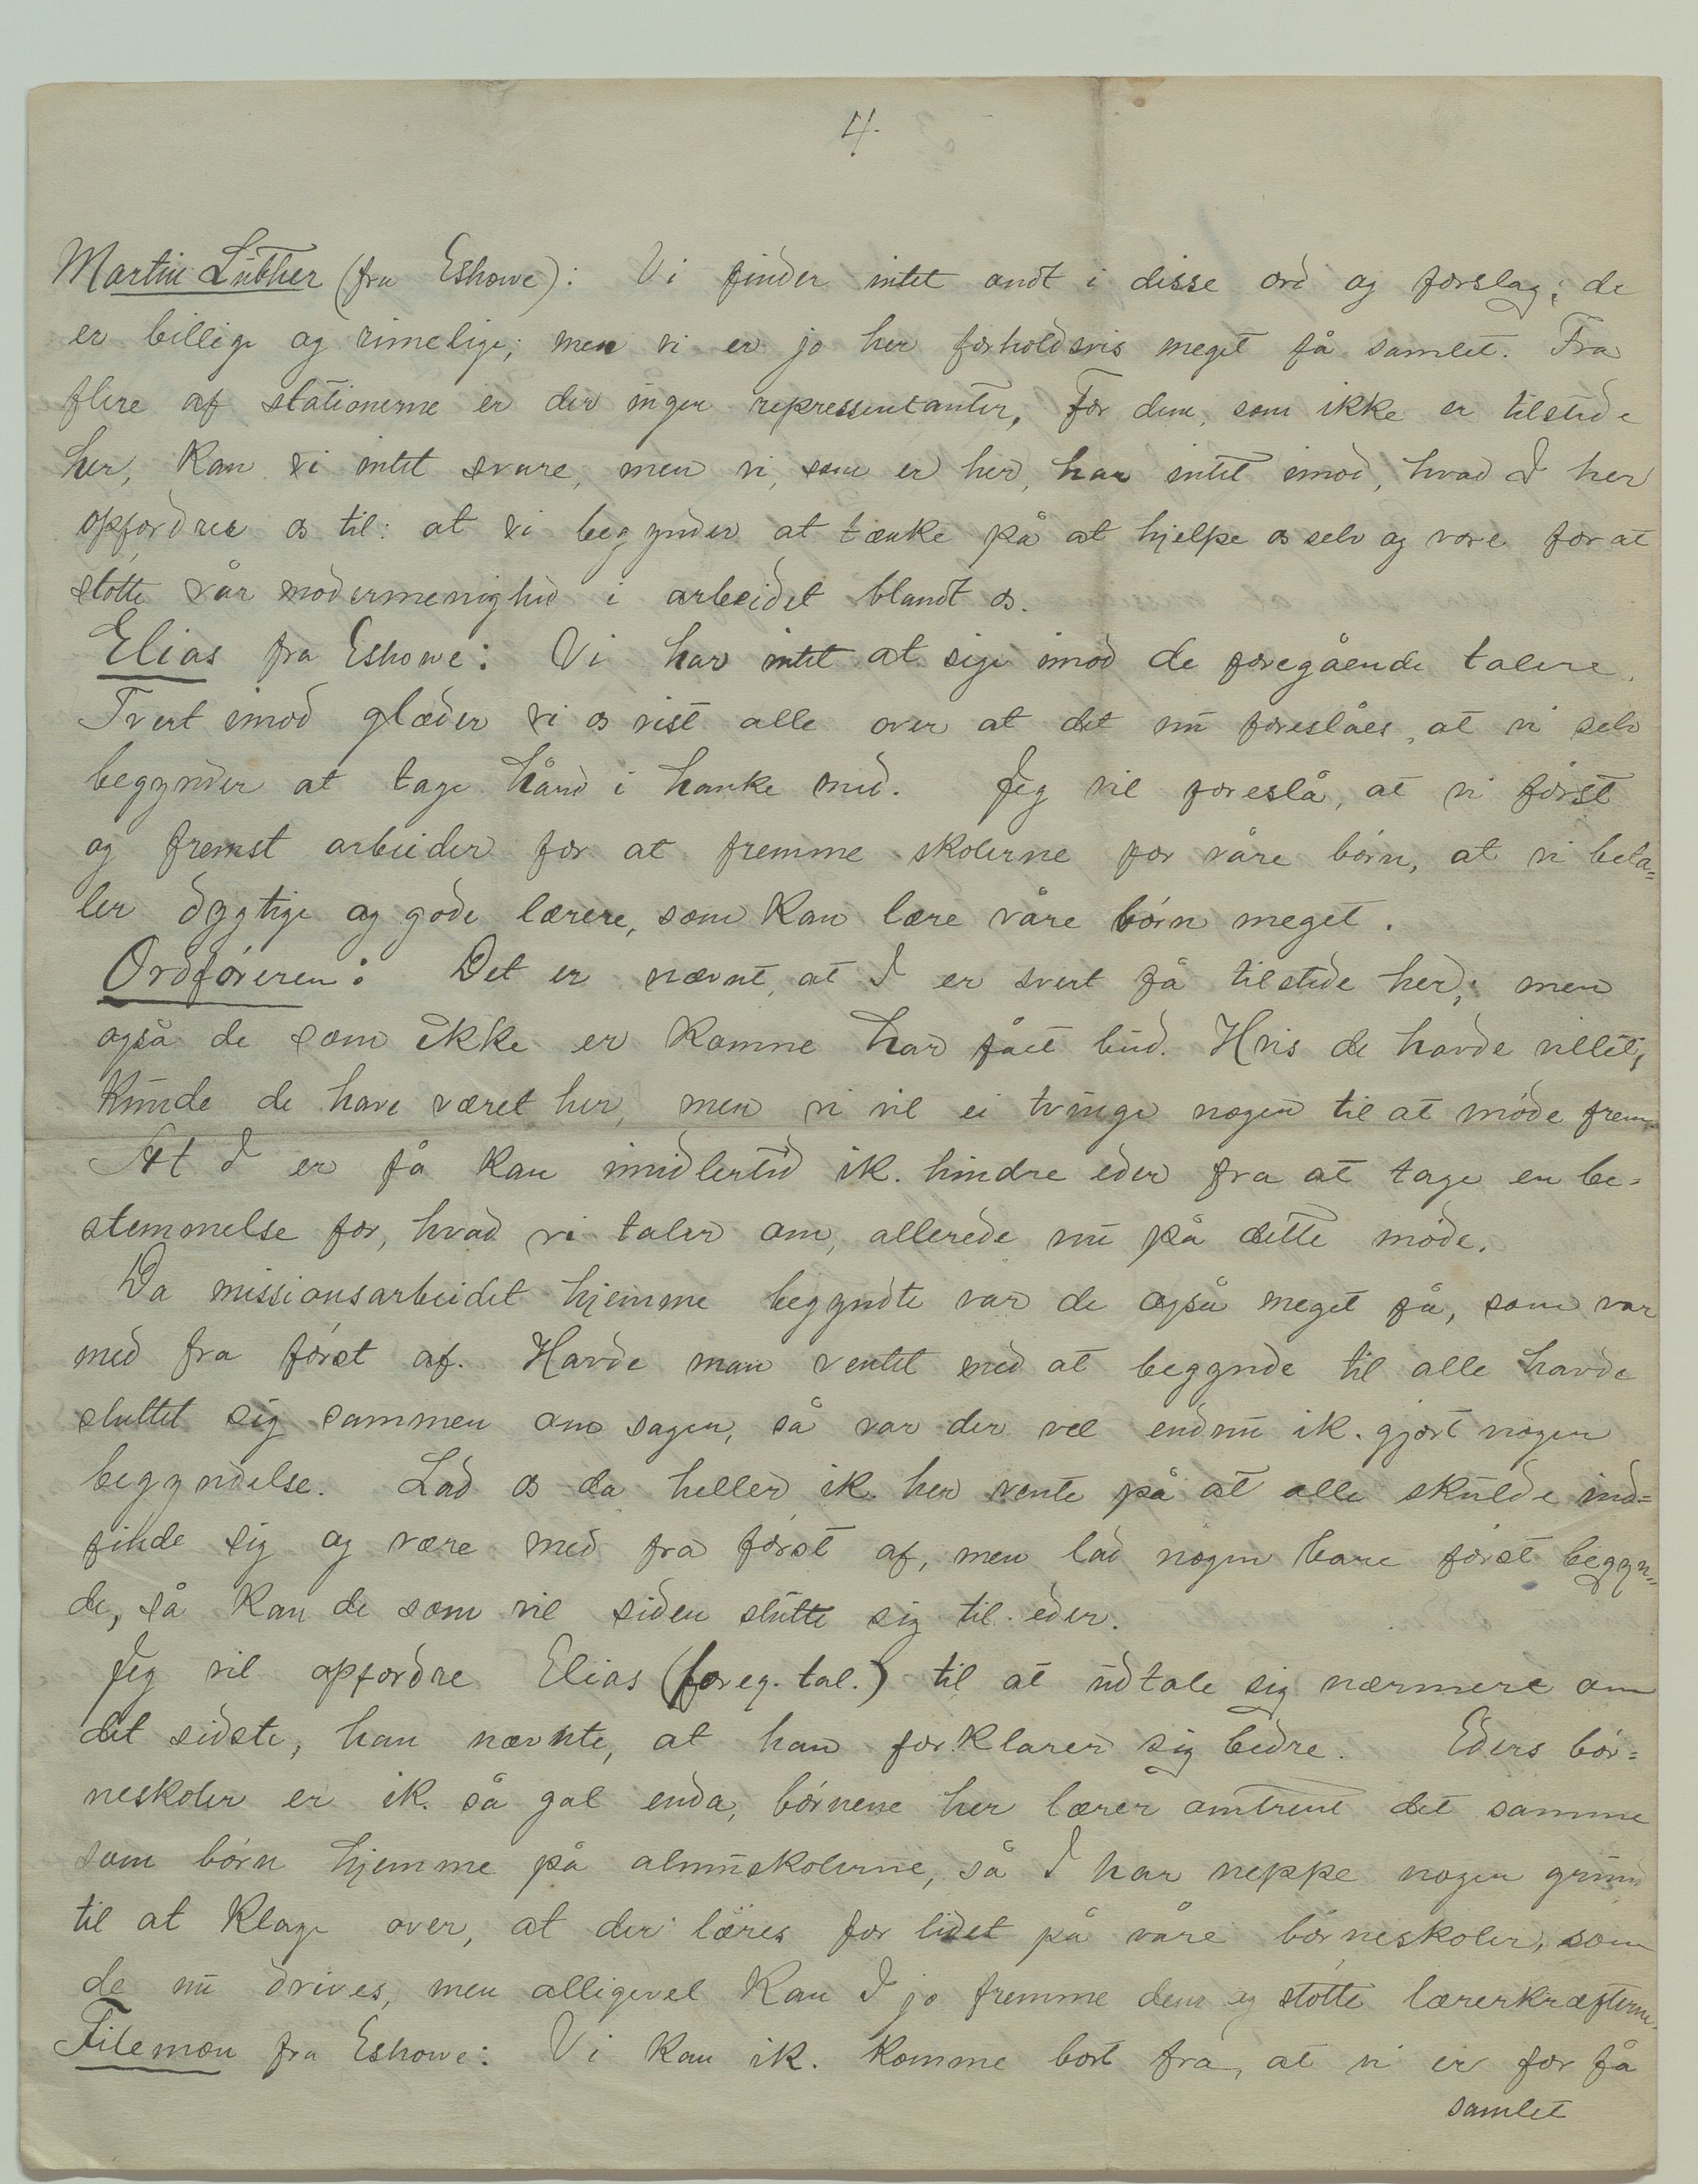 4.
Martin Luther (fra Eshowe): Vi finder intet ondt i disse ord og forslag; de
er billige og rimelige; men vi er jo her forholdsvis meget få samlet. Fra
flere af stationerne er der ingen repressentanter. For dem, som ikke er tilstede
her, kan vi intet svare, men vi, som er her, har intet imod, hvad I her
opfordrer os til: at vi begynder at tænke på at hjelpe os selv og vore for at
støtte vår modermenighed i arbeidet blandt os.
Elias fra Eshowe: Vi har intet at sige imod de foregående talere.
Tvert imod glæder vi os vist alle over at det nu foreslåes, at vi selv
begynder at tage hånd i hanke med. Jeg vil foreslå, at vi først
og fremst arbeider for at fremme skolerne for våre børn, at vi beta=
ler dygtige og gode lærere, som kan lære våre børn meget.
Ordføreren: Det er nævnt, at I er svert få tilstede her; men
også de som ikke er komne har fået bud. Hvis de havde villet,
kunde de have været her, men vi vil ei tvinge nogen til at møde frem.
At I er få kan imidlertid ik. hindre eder fra at tage en be=
stemmelse for, hvad vi taler om, allerede nu på dette møde.
Da missionsarbeidet hjemme begyndte var de også meget få, som var
med fra først af. Havde man ventet med at begynde til alle havde
sluttet sig sammen om sagen, så var der vel endnu ik. gjort nogen
begyndelse. Lad os da heller ik. her vente på at alle skulde ind=
finde sig og være med fra først af, men lad nogen bare først begyn=
de, så kan de som vil siden slutte sig til eder.
Jeg vil opfordre Elias (foreg. tal.) til at udtale sig nærmere om
det sidste, han nævnte, at han forklarer sig bedre. Eders bør=
neskoler er ik. så gal enda, børnene her lærer omtrent det samme
som børn hjemme på almuskolerne, så I har neppe nogen grund
til at klage over, at der læres for lidet på våre børneskoler, som
de nu drives, men alligevel kan I jo fremme dem og støtte lærerkræfterne.
Filemon fra Eshowe: Vi kan ik. komme bort fra, at vi er for få
samlet